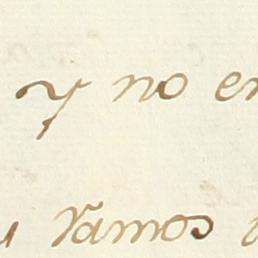 y no en
Vamos